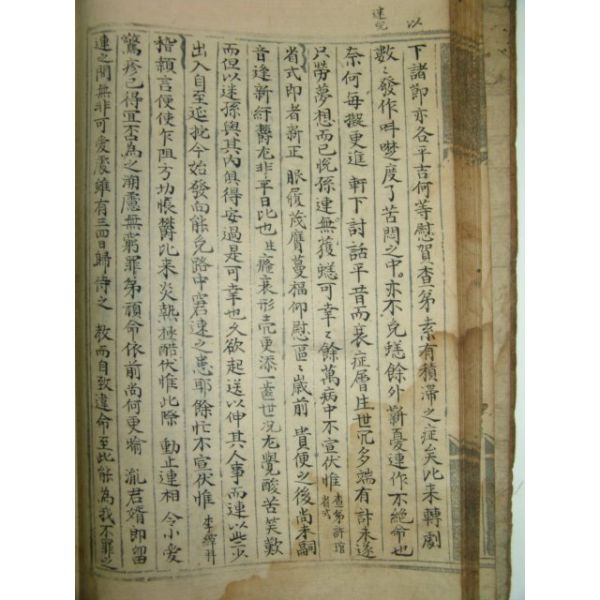 以
連兒
下諸節亦各平吉何等慰賀查弟素有積滯之症矣比來轉劇
數〻發作呌楚度了苦悶之中亦不免蟋餘外嶄憂連作不絶命也
奈何每擬更進 軒下討話平昔而衰症層生世冗多端有計未遂
只勞夢想而已悅孫連無穫蟋可幸〻餘萬病中不宣伏惟 查弟許瑄
省式即者新正 眼履茂膺蔓福仰慰區〻歲前 貴便之後尚未嗣
音逢新紆鬱尤非平日比也生癃衰形壳更添一齒世况尤覺酸苦笑歎
而但以迷孫與其內俱得安過是可幸也久欲起送以伸其人事而連以些少
出入自至延枇今始發向能免路中窘速之患耶餘忙不宣伏惟 李
楷顙言便使乍阻方切悵鬱比來炎熱極酷伏惟此際 動止連相 令小愛
驚疹已得宜否爲之溯慮無窮罪弟頑命依前尚何更喩 胤君婿郎留
連之間無非可愛處雖有三四日歸侍之 敎而自致違命至此能爲我不罪之